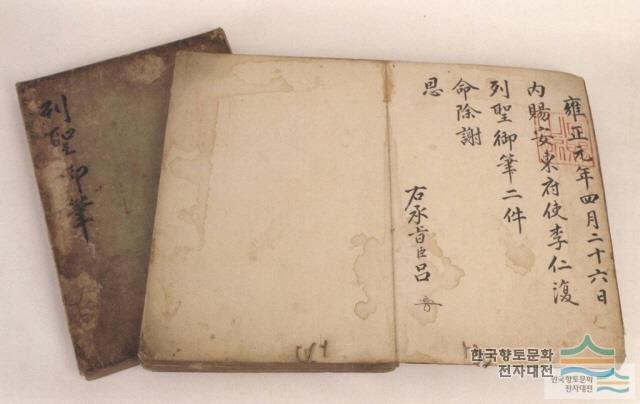 雍正元年四月二十六日
內賜安東府使李仁復
列聖御筆二件
命除謝
恩
右承旨臣呂
列聖御筆
한국향토문화
전자대전
한국향토문화
전자대전